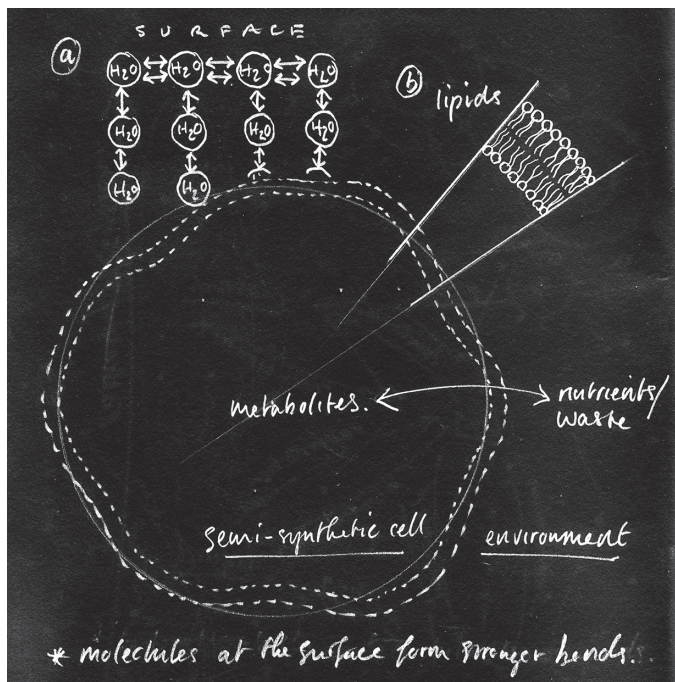 SURFACE
a
H2O H2O H2O H2O
b
lipids
H2O H2O H2O H2O
H2O H2O
metabolites.
nutrients/
waste
semi-synthetic cell
environment
* molecules at the surface form stronger bonds.